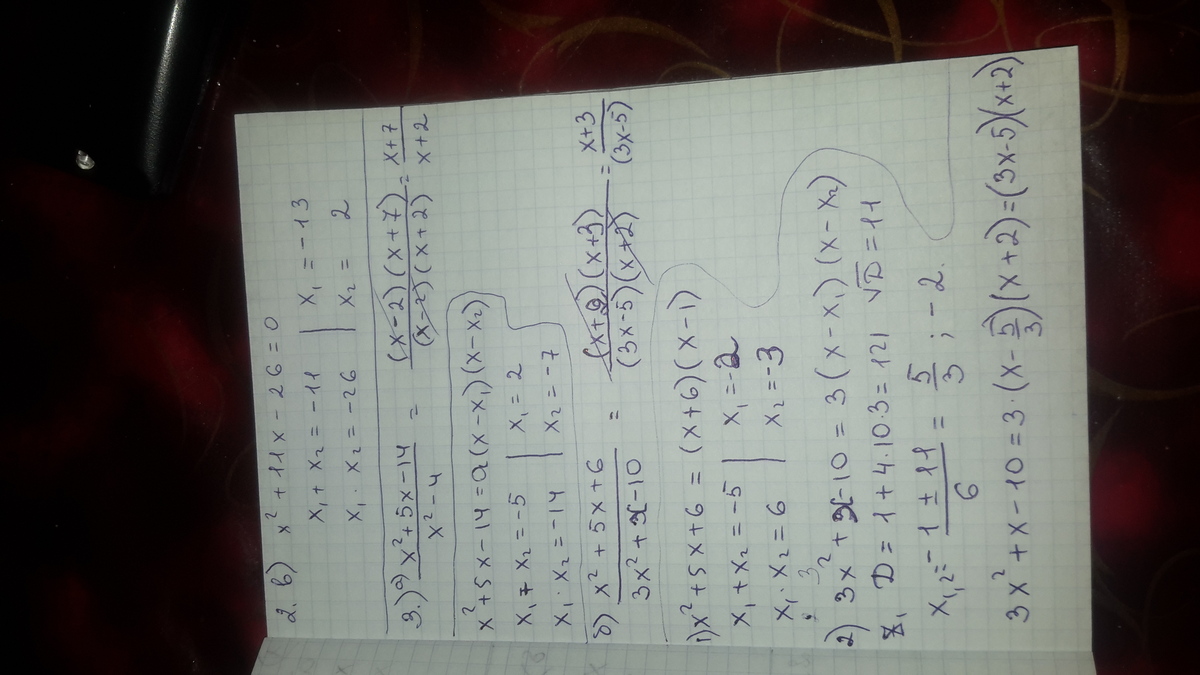 2. в) x² + 11x - 26 = 0
x₁ + x₂ = -11 | x₁ = -13
x₁ · x₂ = -26 | x₂ = 2
3.) а) (x² + 5x - 14)/(x² - 4) = ((x - 2)(x + 7))/((x - 2)(x + 2)) = (x + 7)/(x + 2)
x² + 5x - 14 = a(x - x₁)(x - x₂)
x₁ + x₂ = -5 | x₁ = 2
x₁ · x₂ = -14 | x₂ = -7
б) (x² + 5x + 6)/(3x² + x - 10) = ((x + 2)(x + 3))/((3x - 5)(x + 2)) = (x + 3)/((3x - 5))
1) x² + 5x + 6 = (x + 6)(x - 1)
x₁ + x₂ = -5 | x₁ = -2
x₁ · x₂ = 6 | x₂ = -3
2) 3x² + x - 10 = 3(x - x₁)(x - x₂)
D = 1 + 4·10·3 = 121 √D = 11
x₁,₂ = (-1 ± 11)/6 = 5/3 ; -2.
3x² + x - 10 = 3·(x - 5/3)(x + 2) = (3x - 5)(x + 2)